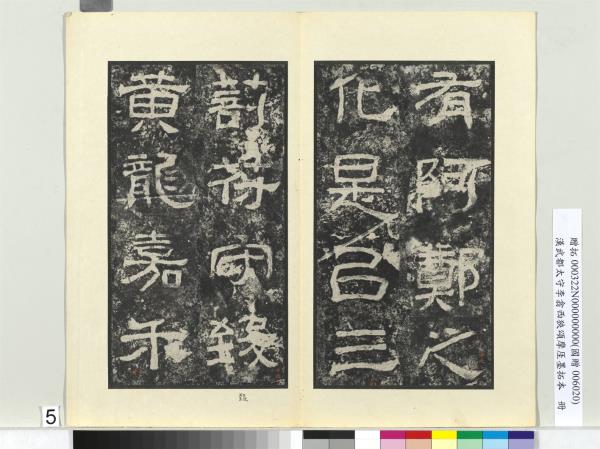 有阿鄭之
化是㠯三
剖符守致
黃龍嘉禾
贈拓 000322N000000000(國贈 006020)
漢武都太守李翕西狹頌摩厓墨拓本 冊
5